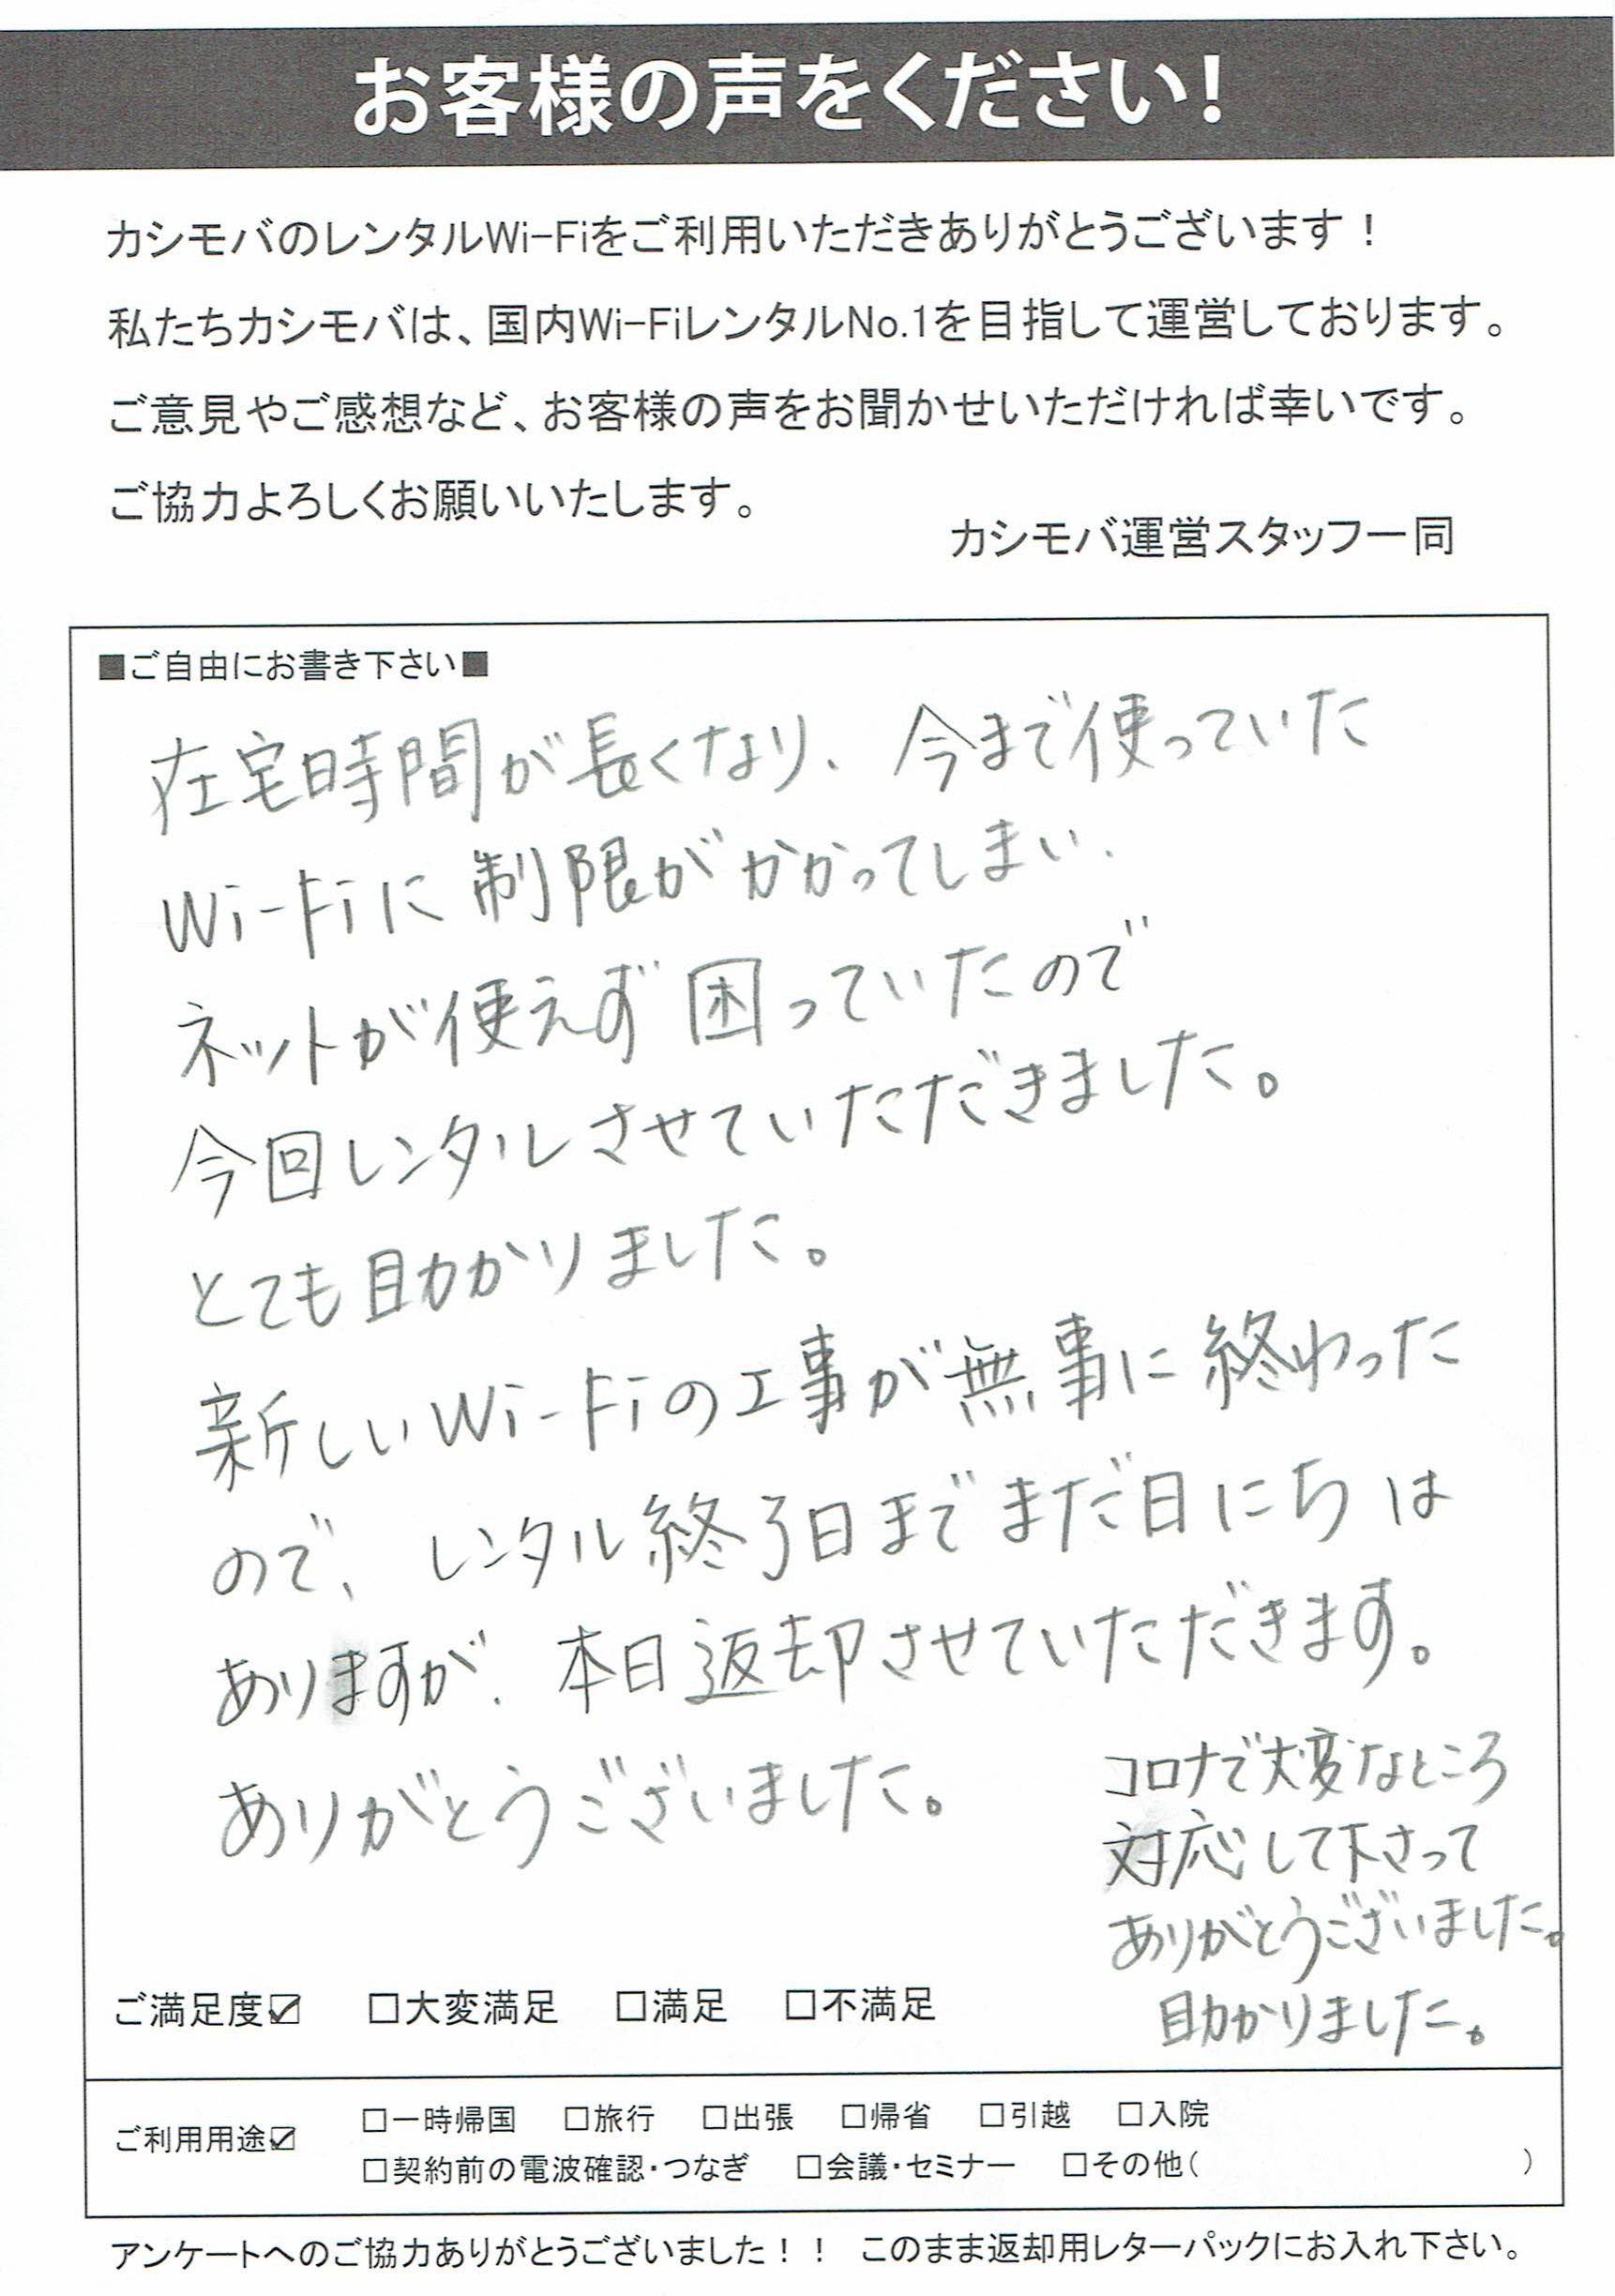 お客様の声をください!
カシモバのレンタルWi-Fiをご利用いただきありがとうございます！
私たちカシモバは、国内Wi-FiレンタルNo.1を目指して運営しております。
ご意見やご感想など、お客様の声をお聞かせいただければ幸いです。
ご協力よろしくお願いいたします。
カシモバ運営スタッフ一同
■ご自由にお書き下さい■
在宅時間が長くなり、今まで使っていた
Wi-Fiに制限がかかってしまい、
ネットが使えず困っていたので
今回レンタルさせていただきました。
とても助かりました。
新しいWi-Fiの工事が無事に終わった
ので、レンタル終了日までまだ日にちは
ありますが、本日返却させていただきます。
ありがとうございました。
コロナで大変なところ
対応して下さって
ありがとうございました。
助かりました。
ご満足度☑ □大変満足 □満足 □不満足
ご利用用途☑ □一時帰国 □旅行 □出張 □帰省 □引越 □入院
□契約前の電波確認・つなぎ □会議・セミナー □その他( )
アンケートへのご協力ありがとうございました！！ このまま返却用レターパックにお入れ下さい。